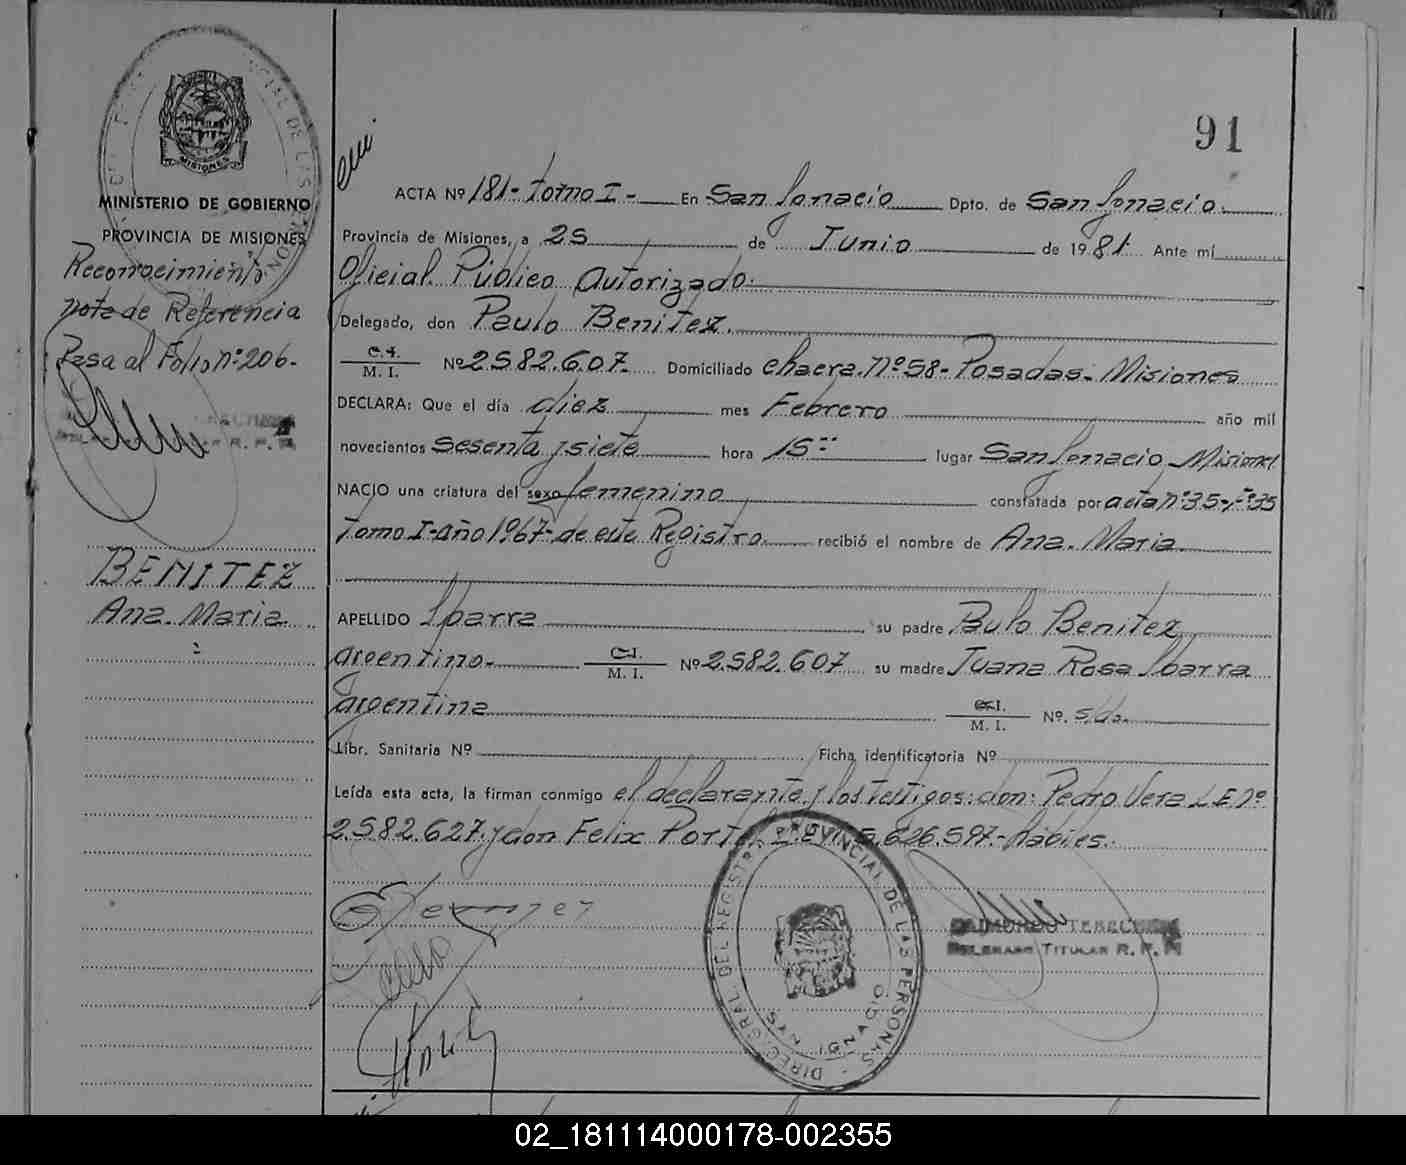 91
MISIONES
MINISTERIO DE GOBIERNO
PROVINCIA DE MISIONES
Reconocimiento
nota de Referencia
Pasa al Folio nº 206.
BENITEZ
Ana. Maria.
ACTA Nº 181- tomo I - En San Ignacio Dpto. de San Ignacio.
Provincia de Misiones, a 25 de Junio de 1981. Ante mí
Oficial Público Autorizado.
Delegado, don Paulo Benitez.
C.I. M. I. Nº 2.582.607. Domiciliado chacra. Nº 58- Posadas- Misiones
DECLARA: Que el día diez mes Febrero año mil
novecientos sesenta y siete hora 15:: lugar San Ignacio Misiones
NACIO una criatura del sexo femenino constatada por acta nº 35- Fº 35
tomo I- año 1967- de este Registro. recibió el nombre de Ana. Maria.
APELLIDO Ibarra su padre Paulo Benitez
argentino. C.I. M. I. Nº 2.582.607 su madre Juana Rosa Ibarra
argentina C.I. M. I. Nº. s/do.
Libr. Sanitaria Nº Ficha identificatoria Nº
Leída esta acta, la firman conmigo el declarante y los testigos: don: Pedro Vera L.E. nº
2.582.627. y don Felix 5.626.597.- hábiles.
DELEGADO TITULAR R. P.
DIREC. GRAL. DEL REGISTRO PROVINCIAL DE LAS PERSONAS -
SAN IGNACIO
02_181114000178-002355